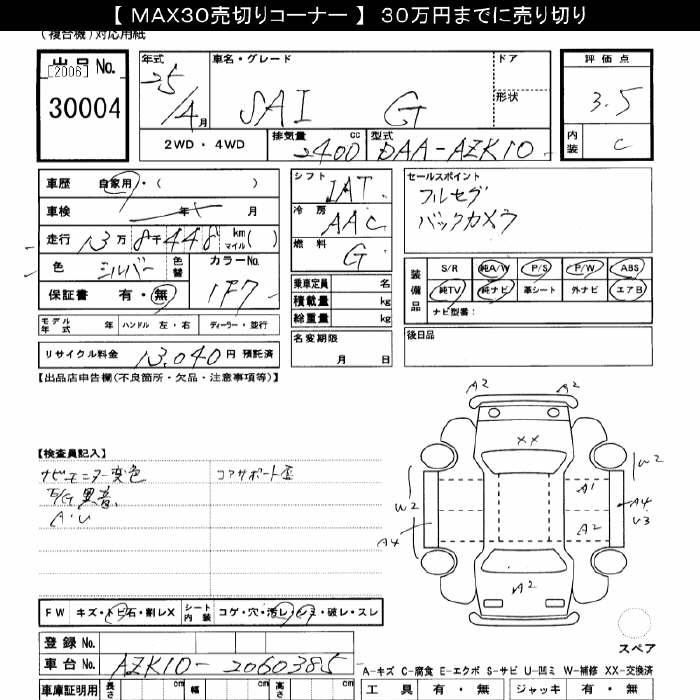 【 MAX30売切りコーナー 】 30万円までに売り切り
(複合機)対応用紙
出品 No.
[2006]
30004
年式
25/4月
車名・グレード
SAI G
ドア
形状
評価点
3.5
内装
C
2WD・4WD
排気量 cc
2400
型式
DAA-AZK10
車歴 自家用・( )
車検 年 月
走行 13万8千448 km マイル( )
色 シルバー 色替
カラーNo.
1F7
保証書 有・無
モデル年式 年 ハンドル 左・右 ディーラー・並行
リサイクル料金 13,040 円 預託済
シフト IAT
冷房 AAC
燃料 G
乗車定員 名
積載量 kg
総重量 kg
名変期限
月 日
セールスポイント
フルセグ
バックカメラ
装備品
S/R 純A/W P/S P/W ABS
純TV 純ナビ 革シート 外ナビ エアB
ナビ型番:
後日品
【出品店申告欄(不良箇所・欠品・注意事項等)】
【検査員記入】
ナビモニター変色
E/G異音
A・U
コアサポート歪
A2 A2
XX
W2
W2
A1
A4
U3
A4
A2
A2
スペア
FW キズ・トビ石・割レX
シート内装 コゲ・穴・汚レ・シミ・破レ・スレ
登録 No.
車台 No. AZK10-2060385
車庫証明用 長さ cm 幅 cm 高さ cm
A-キズ C-腐食 E-エクボ S-サビ U-凹ミ W-補修 XX-交換済
工具 有・無 ジャッキ 有・無